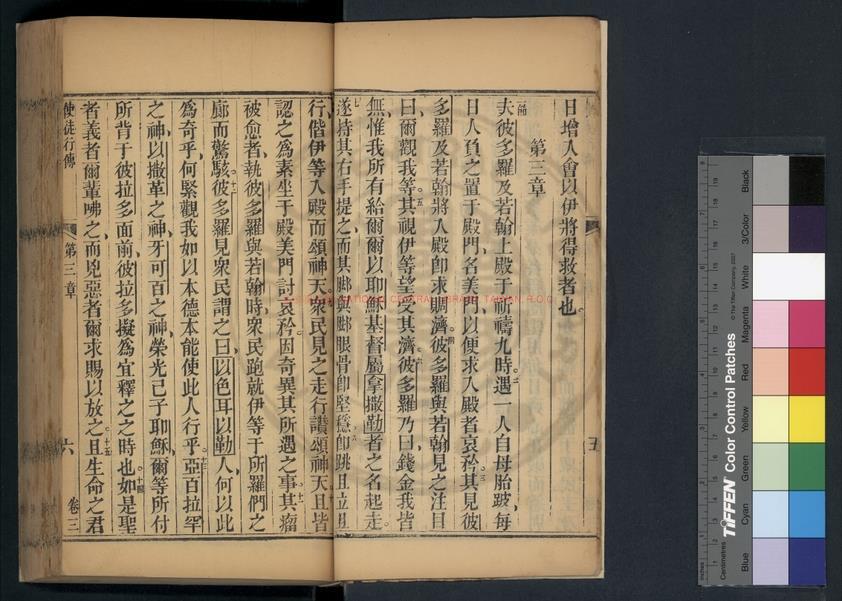 日增人會以伊將得救者也
第三章
夫彼多羅及若翰上殿于祈禱九時遇一人自母胎跛每
日人負之置于殿門名美門以便求入殿者哀矜其見彼
多羅及若翰將入殿卽求賙濟彼多羅與若翰見之注目
曰爾觀我等其視伊等望受其濟彼多羅乃曰錢金我皆
無惟我所有給爾爾以耶穌基督屬拿撒勒者之名起走
遂持其右手提之而其脚與脚眼骨卽堅穩卽跳且立且
五
行偕伊等入殿而頌神天衆民見之走行讚頌神天且皆
認之為素坐于殿美門討哀矜因奇異其所遇之事其瘤
被愈者執彼多羅與若翰時衆民跑就伊等于所羅們之
廊而驚駭彼多羅見衆民謂之曰以色耳以勒人何以此
為奇乎何緊觀我如以本德本能使此人行乎亞百拉罕
之神以撒革之神牙可百之神榮光己子耶穌爾等所付
所背于彼拉多面前彼拉多擬為宜釋之之時也如是聖
者義者爾輩咈之而兇惡者爾求賜以放之且生命之君
使徒行傳
第三章
六
卷三
NATIONAL CENTRAL LIBRARY, TAIWAN, R.O.C.
TIFFEN Color Control Patches
© The Tiffen Company, 2007
Centimetres
Inches
Blue
Cyan
Green
Yellow
Red
Magenta
White
3/Color
Black